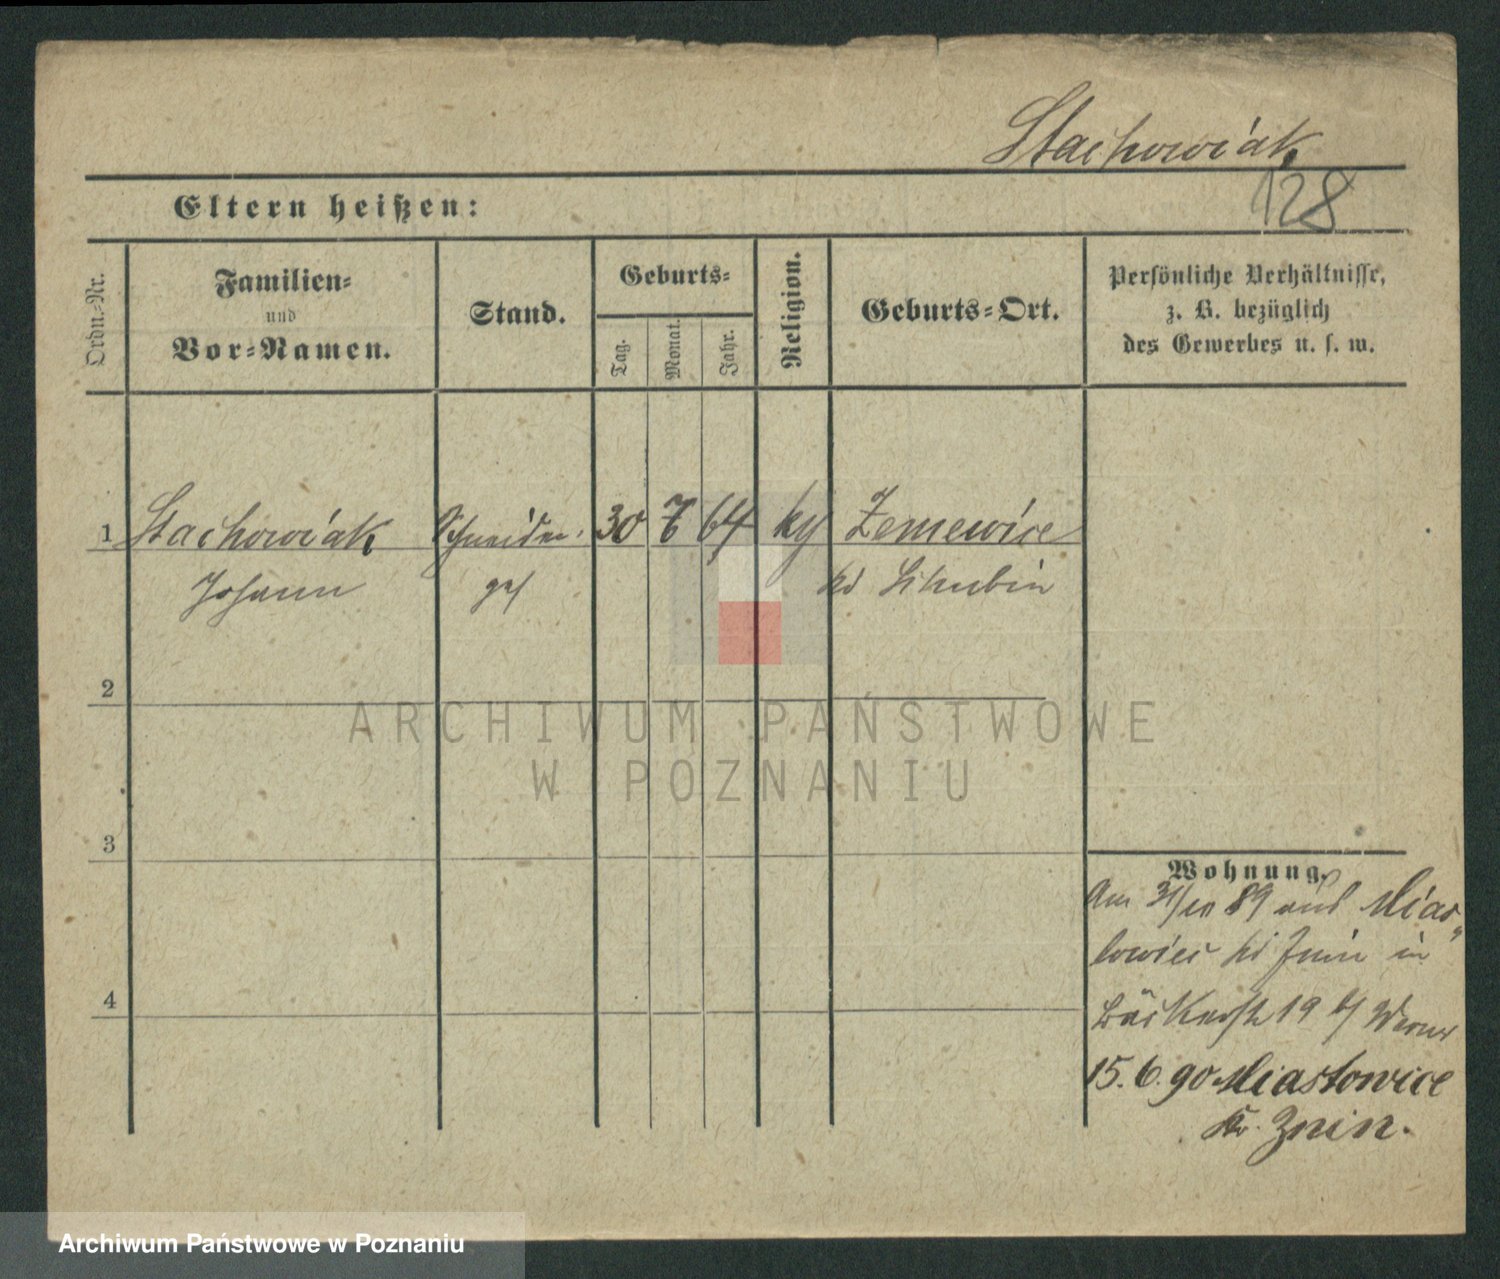 Stachowiak
128
Eltern heißen:
Ordn.-Nr.
Familien-
und
Vor-Namen.
Stand.
Geburts-
Tag.
Monat.
Jahr.
Religion.
Geburts-Ort.
Persönliche Verhältnisse,
z. B. bezüglich
des Gewerbes u. s. w.
1 Stachowiak Schneider 30 7 64 Zernewice
Johann
2
ARCHIWUM PAŃSTWOWE
W POZNANIU
3
4
Wohnung.
Am 31/10 89 aus Mias
lowice Kr Znin in
Bäckerstr 19 b/
15. 6. 90 Miastowice
Kr. Znin.
Archiwum Państwowe w Poznaniu